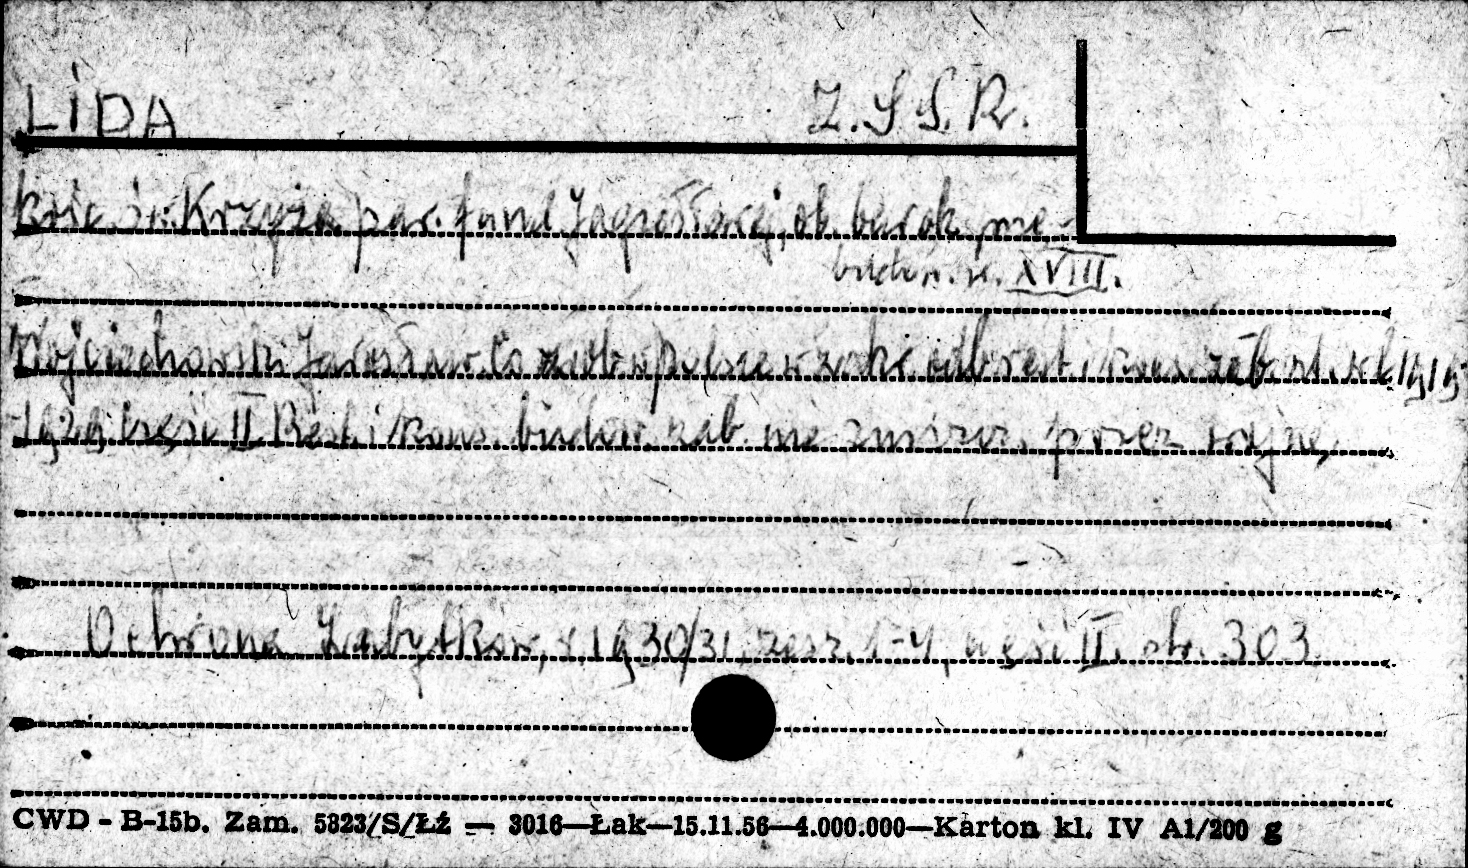 LIDA Z.S.S.R.
kośc. św. Krzyża par. fund. Jagiełłowej, ob. barok, prze-
budow. w. XVIII.
Wojciechowski Jarosław. Co zrobiono w Polsce w zakr. odbud. i kons. zab. od. r. 1919
-1929 część II Rest. i kons. budow. zab. nie zniszcz. przez wojnę,
Ochrona Zabytków, r. 1930/31, zesz. 1-4, część II. str. 303
CWD - B-15b. Zam. 5823/S/Łź — 3016—Łak—15.11.56—4.000.000—Karton kl. IV A1/200 g